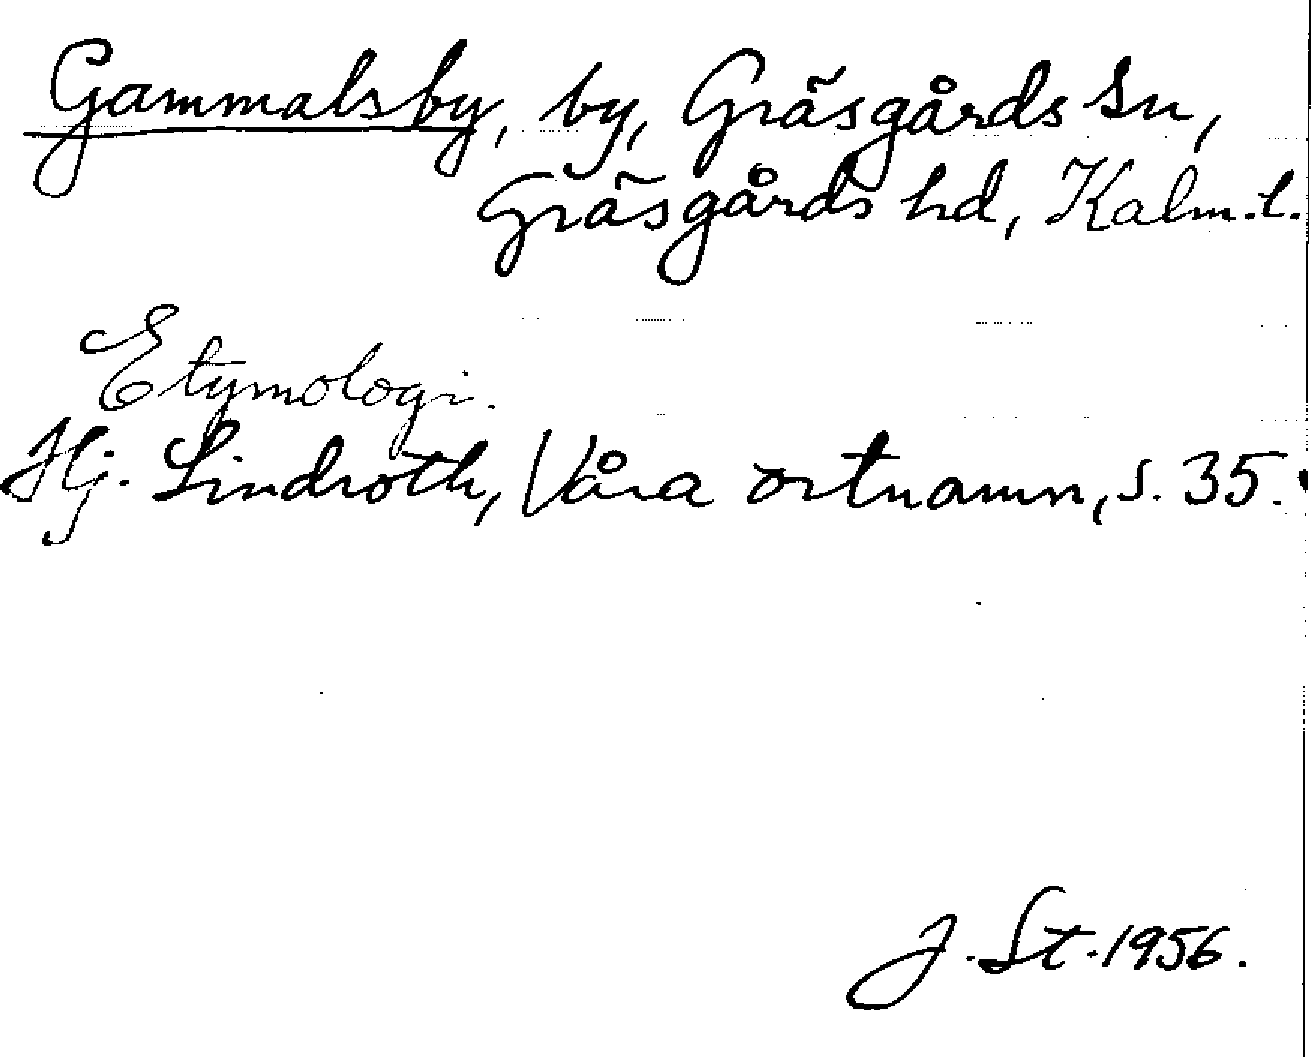 Gammalsby, by, Gräsgårds sn,
Gräsgårds hd, Kalm.l.
Etymologi.
Hj. Lindroth, Våra ortnamn, s. 35.
J. St. 1956.